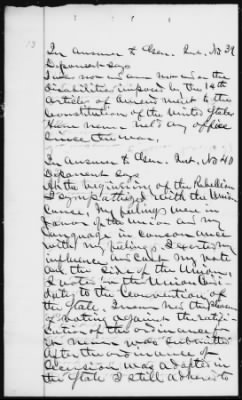 13
In answer to Gen. Int. No 39
Deponent says
I was not nor am now under the
disabilities imposed by the 14th
Article of Amendment to the
Constitution of the United States
Have never held any office
since the war.
In answer to Gen. Int. No 40
Deponent says
At the beginning of the Rebellion
I sympathized with the Union
Cause, My feelings were in
favor of the Union and my
language in consonance
with my feelings. I exerted my
influence and cast my vote
on the side of the Union,
I voted for the Union Candi
dates to the Convention of
the State. I never had the pleasure
of voting against the ratifi-
cation of the ordinance for
it never was submitted
After the ordinance of
Secession was adopted in
the State I still adhered to